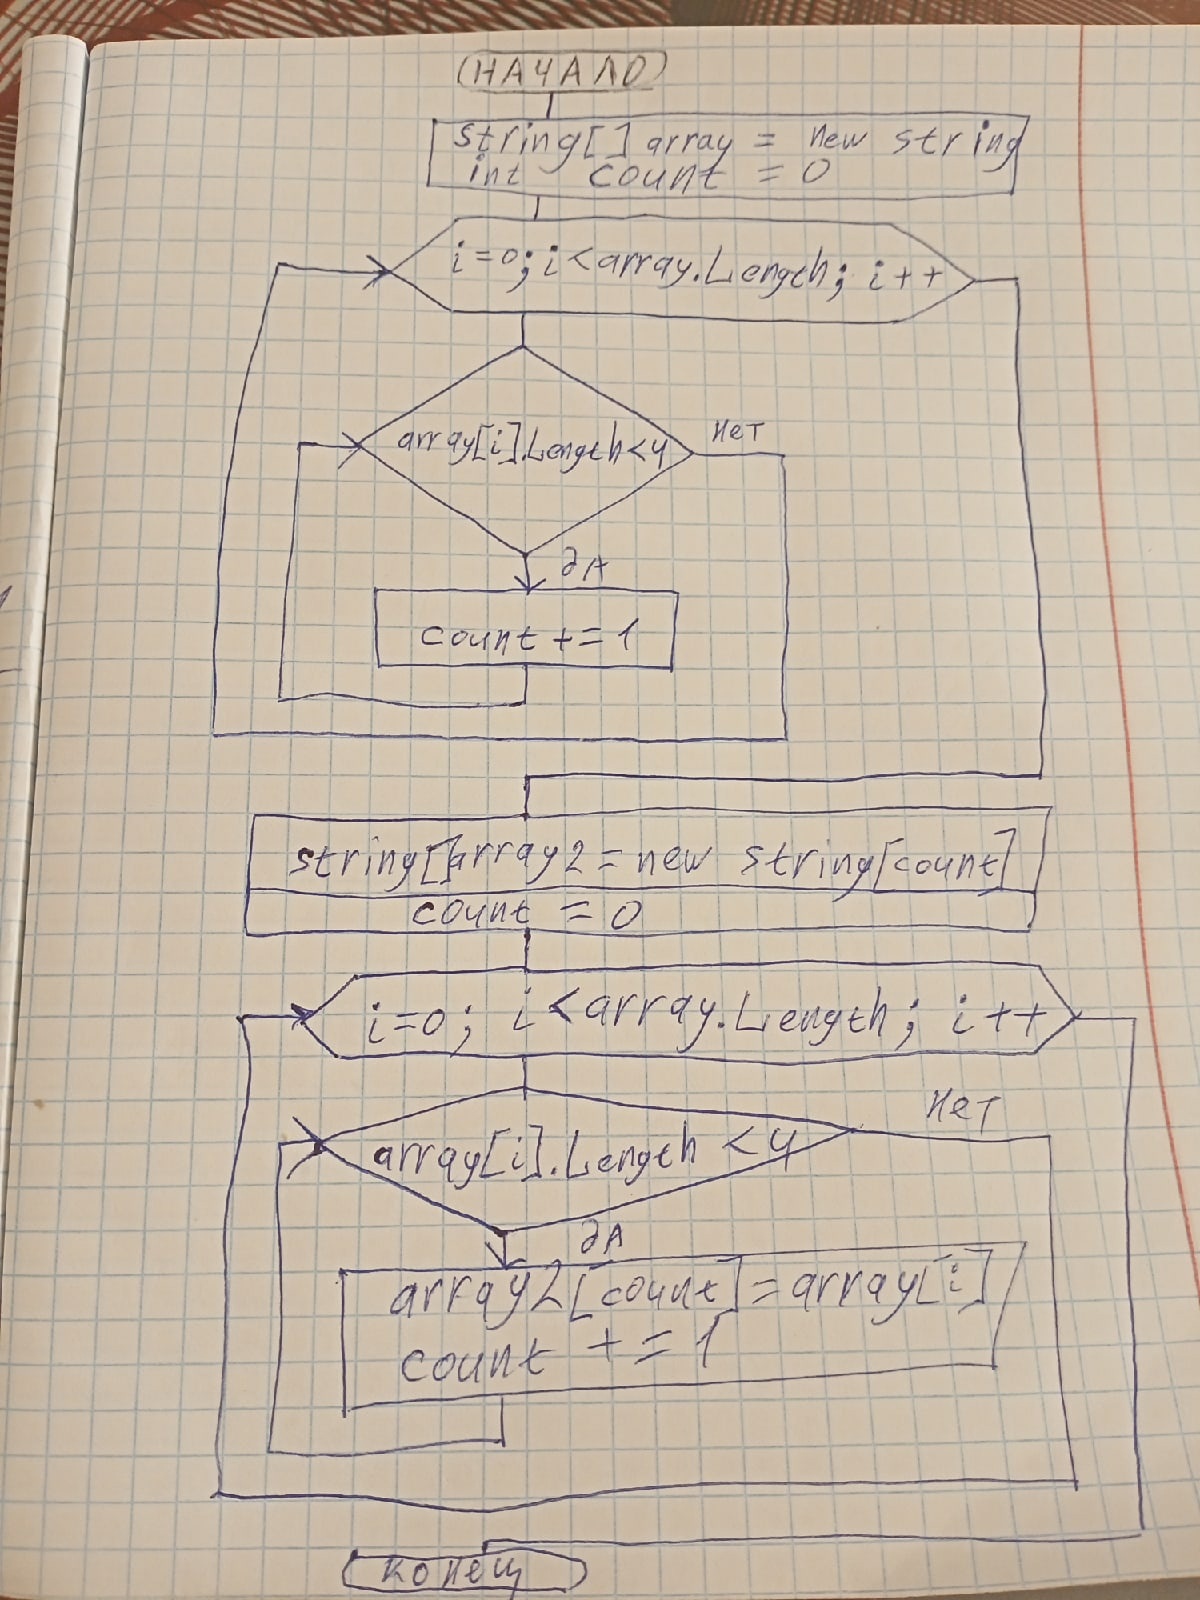 НАЧАЛО
string[] array = new string
int count = 0
i=0; i<array.Length; i++
array[i].Length<4
нет
дА
count += 1
string[]array2 = new string[count]
count = 0
i=0; i<array.Length; i++
нет
array[i].Length <4
дА
array2[count]=array[i]
count += 1
конец